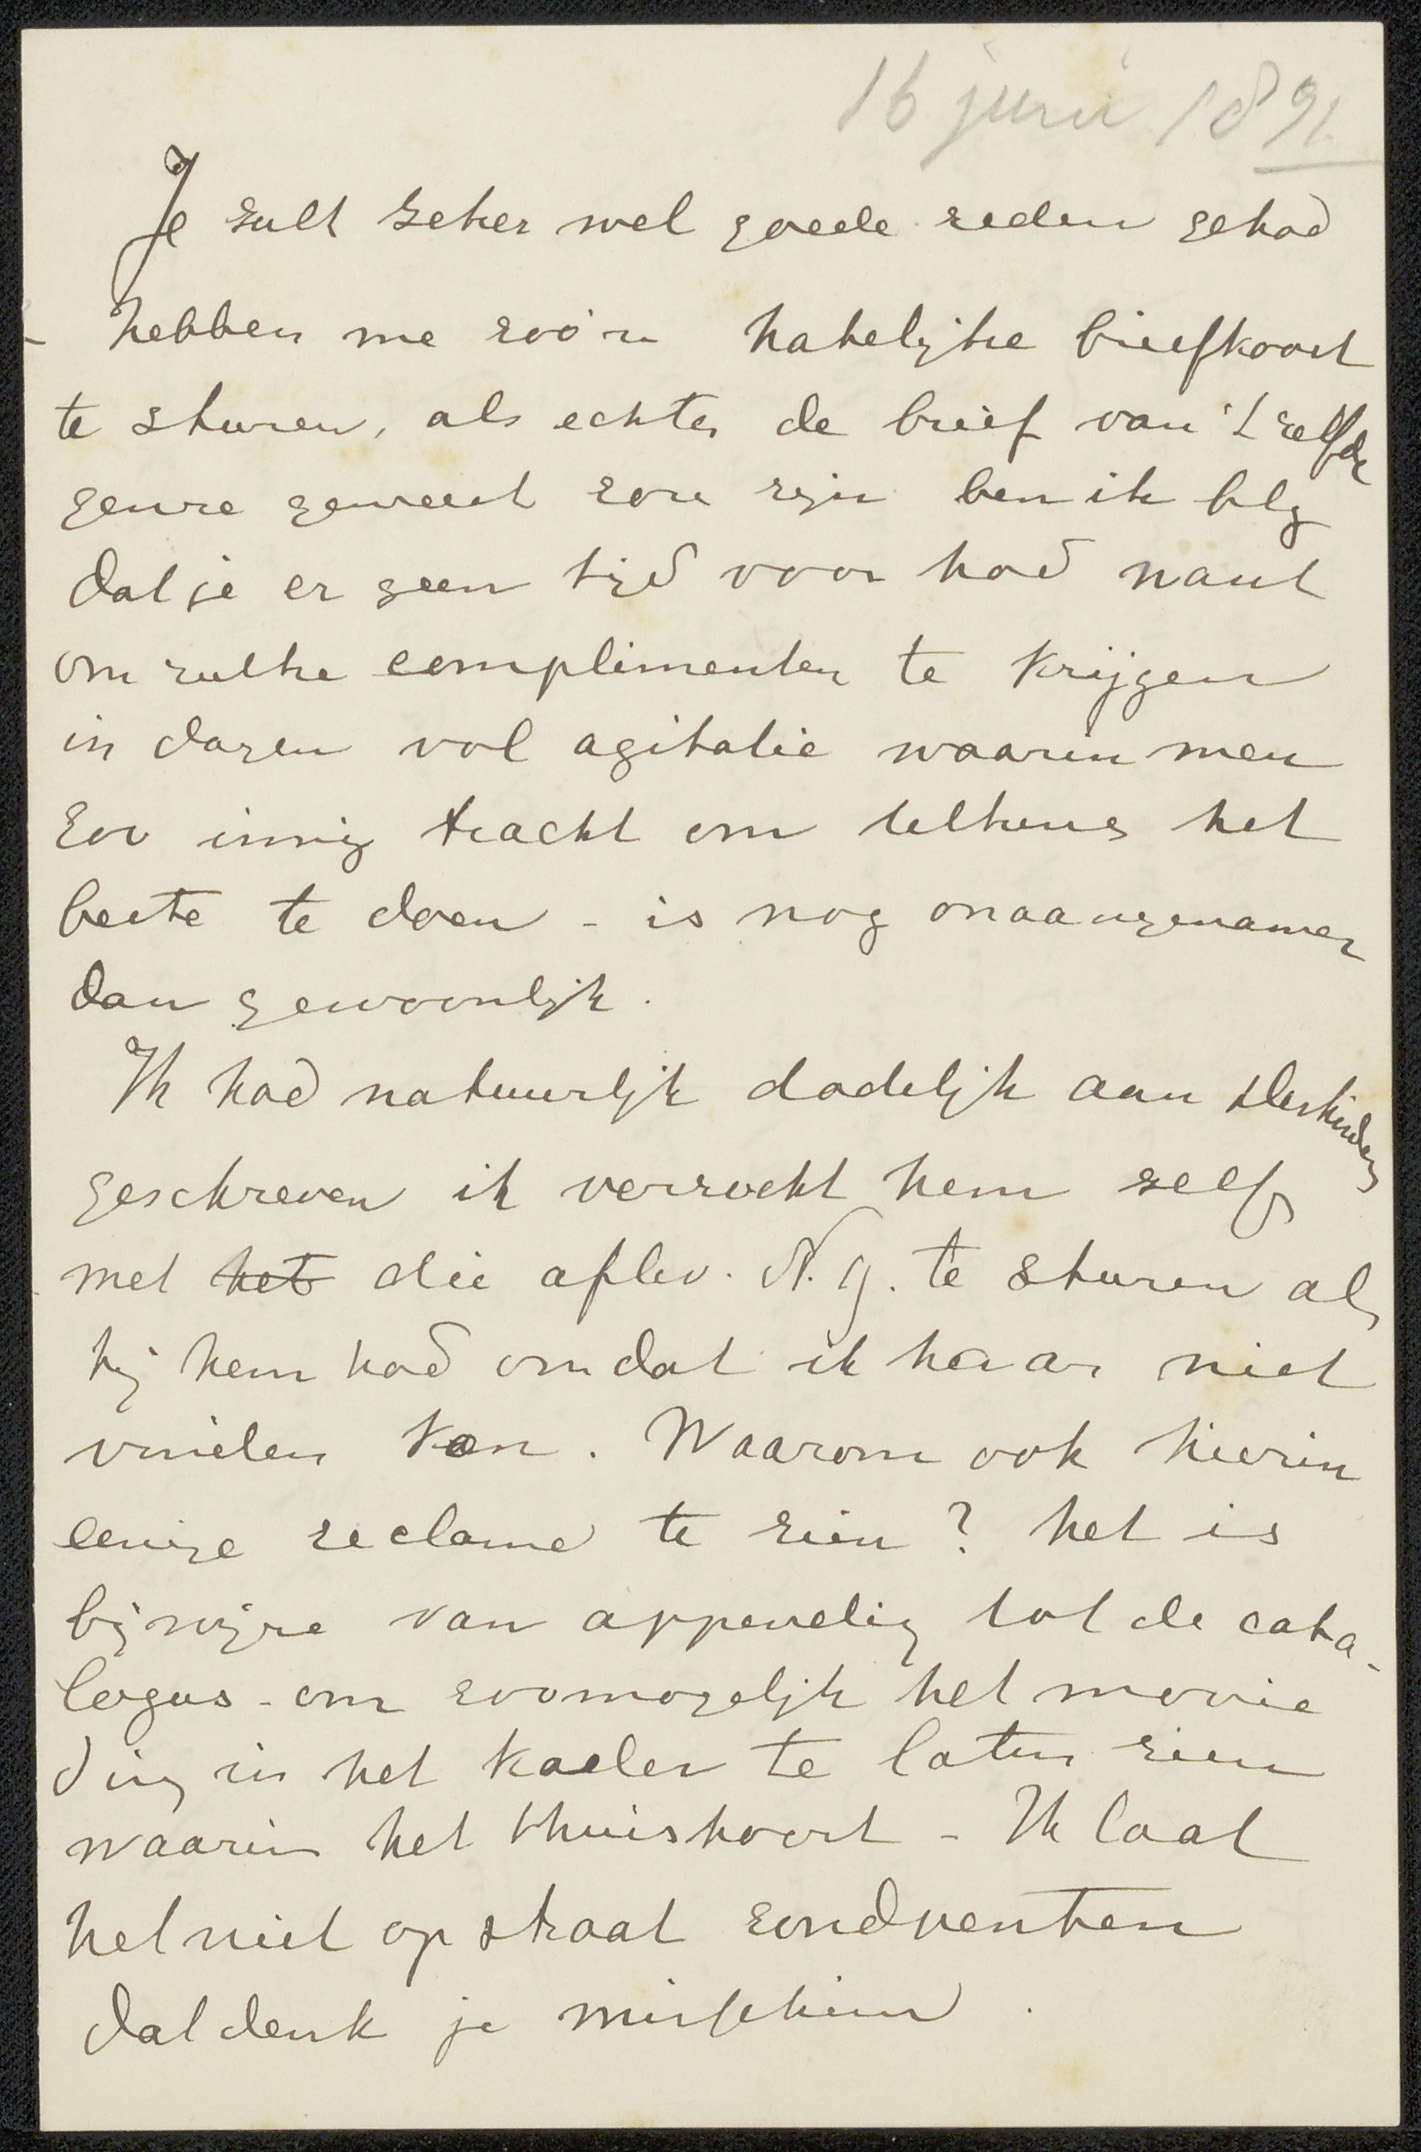 16 juni 1891
Je zult zeker wel goede reden gehad
hebben me zoo'n hatelijke briefkaart
te sturen, als echter de brief van 't zelfde
genre geweest zou zijn ben ik blij
dat je er geen tijd voor had want
om zulke complimenten te krijgen
in dagen vol agitatie waarin men
zoo innig tracht om telkens het
beste te doen - is nog onaangenamer
dan gewoonlijk.
Ik had natuurlijk dadelijk aan Derkinderen
geschreven ik verzocht hem zelfs
met het die aflev. N.G. te sturen als
hij hem had omdat ik haar niet
vinden kan. Waarom ook hierin
eenige reclame te zien? het is
bij wijze van appendix tot de cata-
logus - om zoomogelijk het mooie
ding in het kader te laten zien
waarin het thuishoort - Ik laat
het niet op straat rondventen
dat denk je misschien.